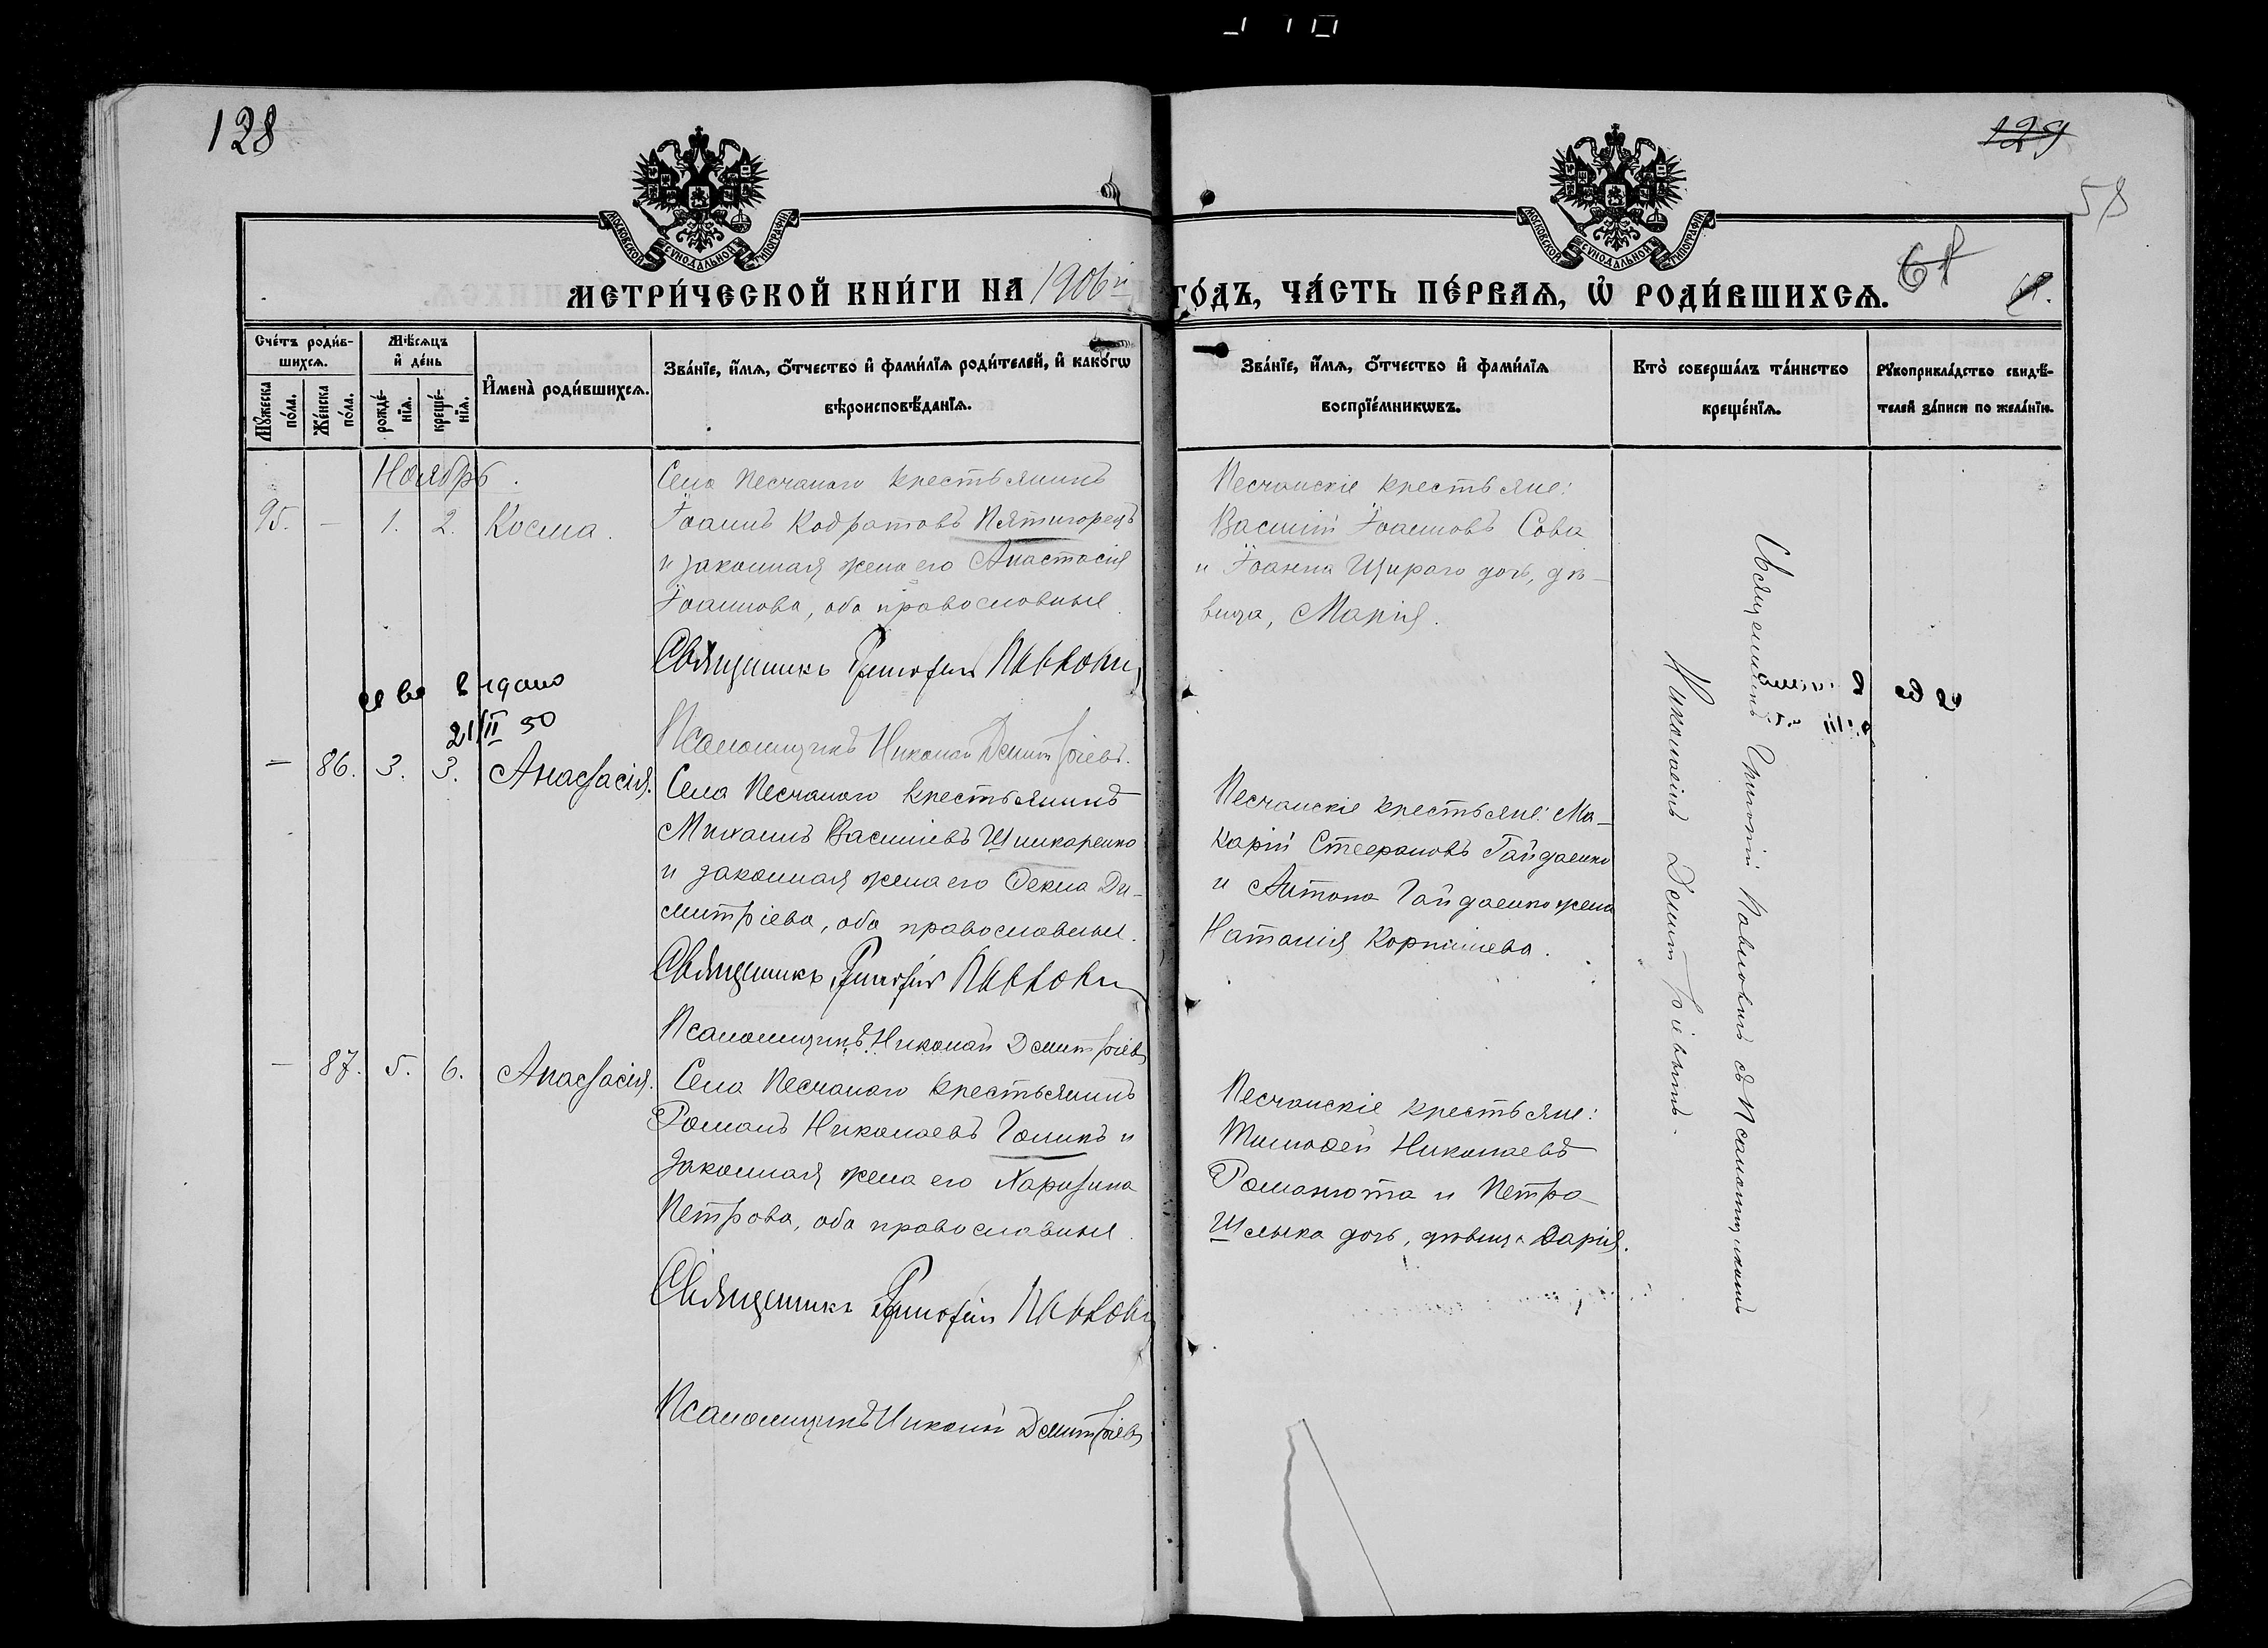 128
129
58
МОСКОВСКОЙ СѴНОДАЛЬНОЙ ТИПОГРАФІИ
МОСКОВСКОЙ СѴНОДАЛЬНОЙ ТИПОГРАФІИ
МЕТРИ́ЧЕСКОЙ КНИ́ГИ НА 1906й ГО́ДЪ, ЧА́СТЬ ПЕ́РВАЯ, Ѡ҆ РОДИ́ВШИХСЯ.
61
Сче́тъ роди́в-
шихся.
Мꙋ́жеска по́ла.
Же́нска по́ла.
Мѣ́сяцъ
и҆ де́нь
рожде́-
нїя.
креще́-
нїя.
И҆мена̀ роди́вшихся.
Зва́нїе, и҆́мя, ѻ҆́тчество и҆ фами́лїя роди́телей, и҆ како́гѡ
вѣроисповѣ́данїя.
Зва́нїе, и҆́мя, ѻ҆́тчество и҆ фами́лїя
воспрїе́мникѡвъ.
Кто̀ соверша́лъ та́инство
креще́нїя.
Рꙋкоприкла́дство свидѣ́-
телей за́писи по жела́нїю.
Ноябрь.
95. – 1. 2. Косма.
Села Песчаного крестьянинъ
Іоаннъ Кодратовъ Пятигорецъ
и законная жена его Анастасія
Іоаннова, оба православные.
Священникъ Григорій Павловичъ
Псаломщикъ Николай Димитріевъ.
Песчанскіе крестьяне:
Василій Іоанновъ Сова
и Іоанна Щираго дочь, дѣ-
вица, Марія.
св во видано
21/II 50
– 86. 3. 3. Анастасія.
Села Песчаного крестьянинъ
Михаилъ Васильевъ Шинкаренко
и законная жена его Ѳекла Ди-
митріева, оба православные.
Священникъ Григорій Павловичъ
Псаломщикъ Николай Димитріевъ
Песчанскіе крестьяне: Ма-
карій Стефановъ Гайдаенко
и Антона Гайдаенко жена
Наталія Корнилиева.
– 87. 5. 6. Анастасія.
Села Песчаного крестьянинъ
Романъ Николаевъ Голикъ и
законная жена его Харитина
Петрова, оба православные.
Священникъ Григорій Павловичъ
Псаломщикъ Николай Димитріевъ
Песчанскіе крестьяне:
Тимоѳей Николаевъ
Романюта и Петра
Шлыка дочь, дѣвица Дарія.
Священникъ Григорій Павловичъ съ Псаломщикомъ
Николаемъ Димитріевымъ.